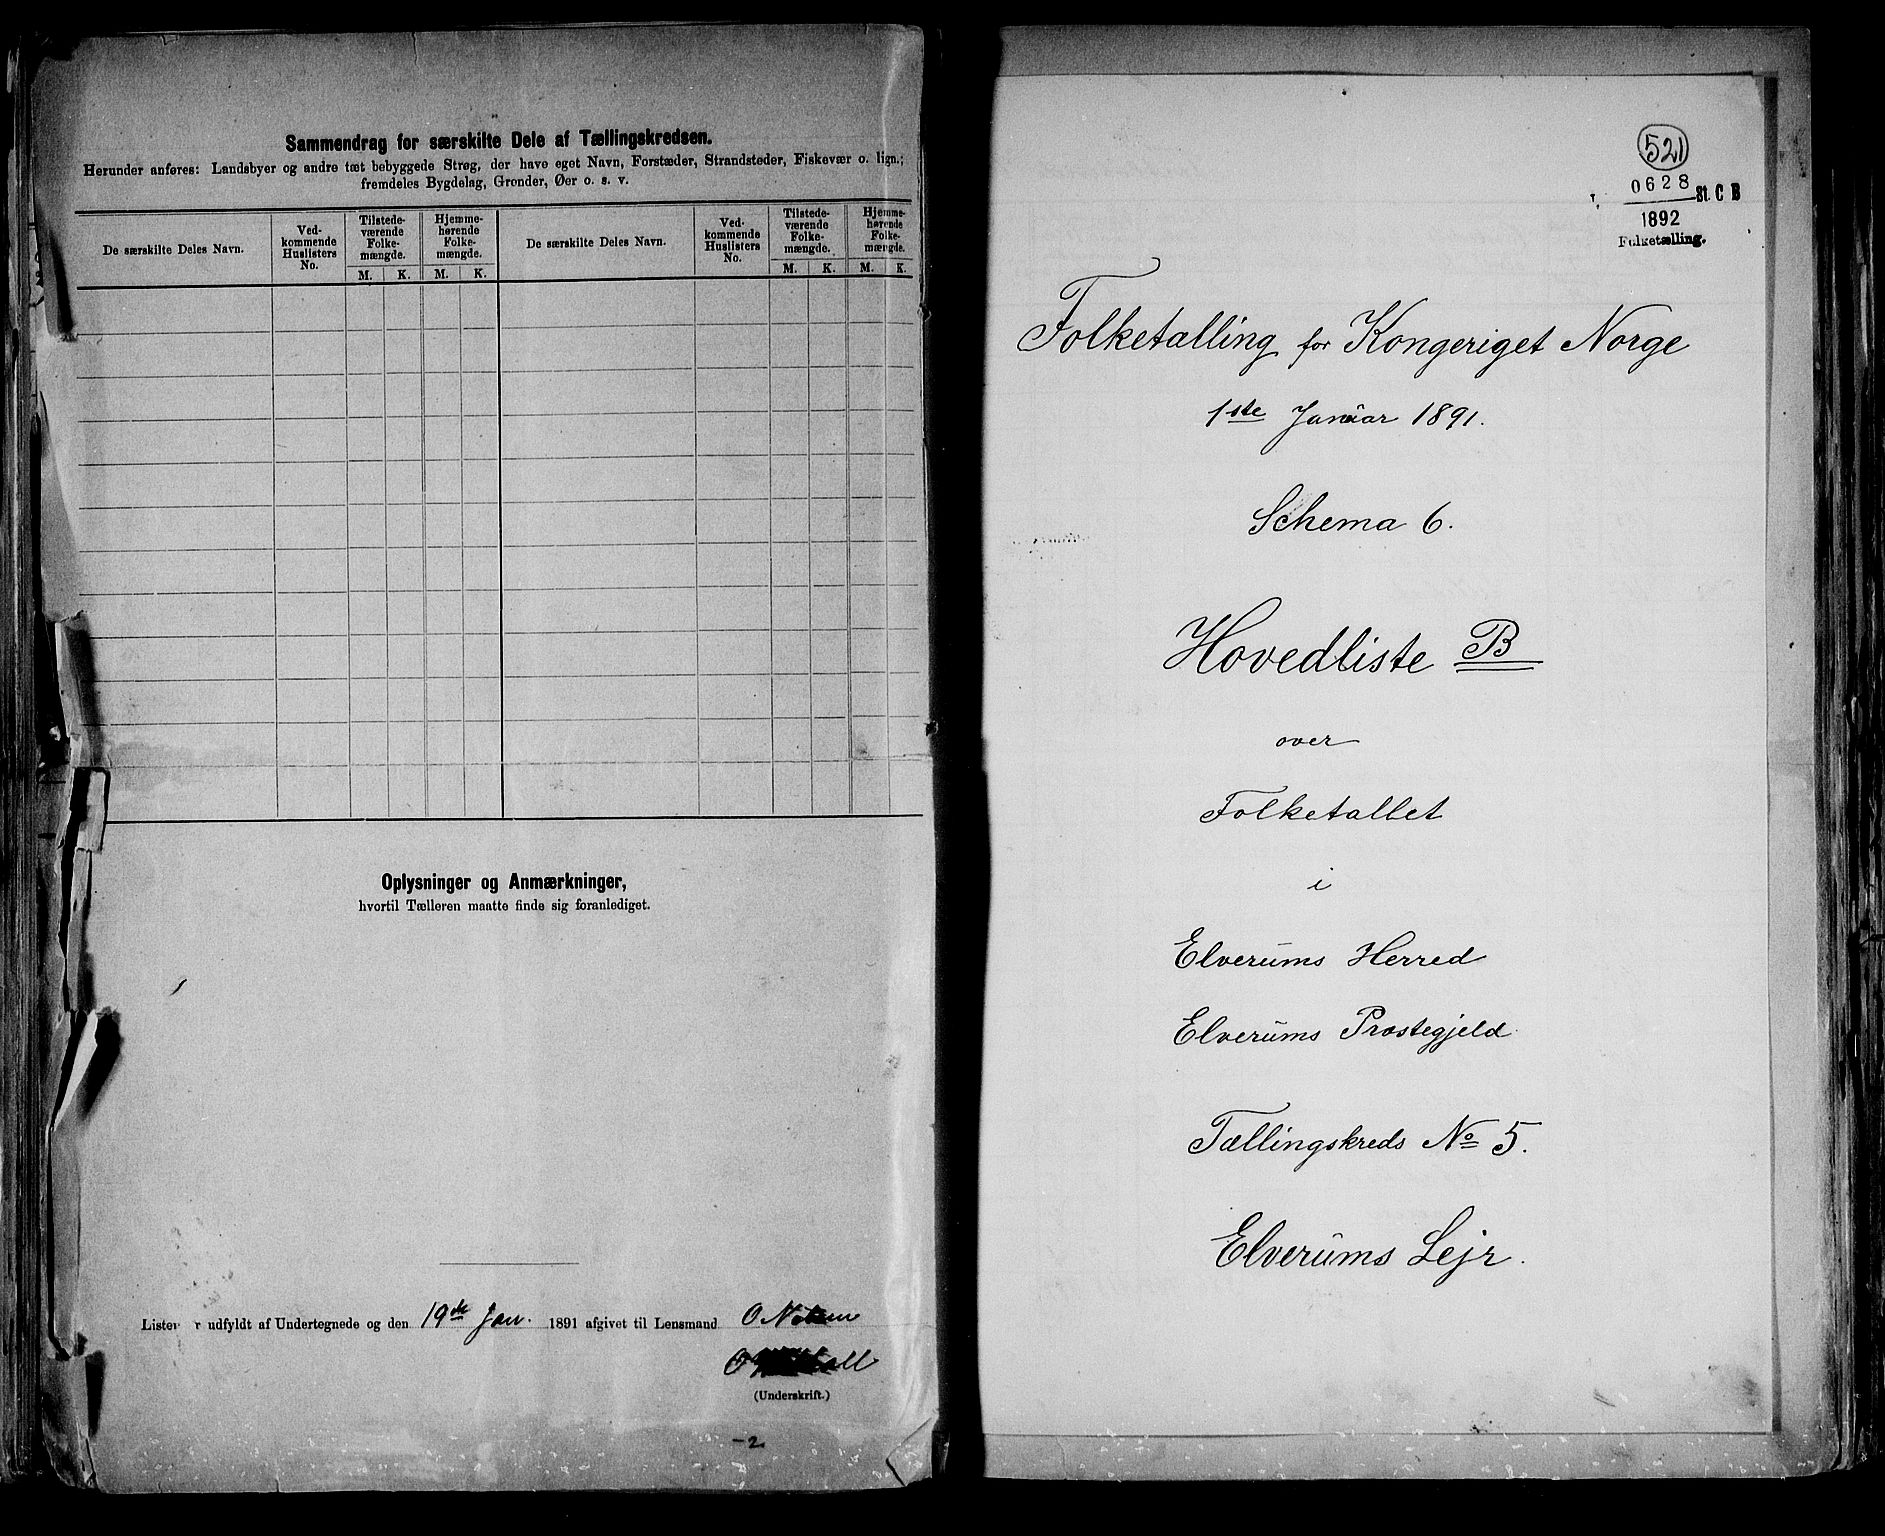 Sammendrag for særskilte Dele af Tællingskredsen.
Herunder anføres: Landsbyer og andre tæt bebyggede Strøg, der have eget Navn, Forstæder, Strandsteder, Fiskevær o. lign.;
fremdeles Bygdelag, Grender, Øer o. s. v.
De særskilte Deles Navn.
Ved-
kommende
Huslisters
No.
Tilstede-
værende
Folke-
mængde.
M. K.
Hjemme-
hørende
Folke-
mængde.
M. K.
De særskilte Deles Navn.
Ved-
kommende
Huslisters
No.
Tilstede-
værende
Folke-
mængde.
M. K.
Hjemme-
hørende
Folke-
mængde.
M. K.
Oplysninger og Anmærkninger,
hvortil Tælleren maatte finde sig foranlediget.
Listen er udfyldt af Undertegnede og den 19de Jan. 1891 afgivet til Lensmand O
O
(Underskrift.)
-2
521
0628
St. C B
1892
Folketælling.
Folketælling for Kongeriget Norge
1ste Januar 1891.
Schema 6.
Hovedliste B
over
Folketallet
i
Elverums Herred
Elverums Præstegjeld
Tællingskreds No 5.
Elverums Lejr.